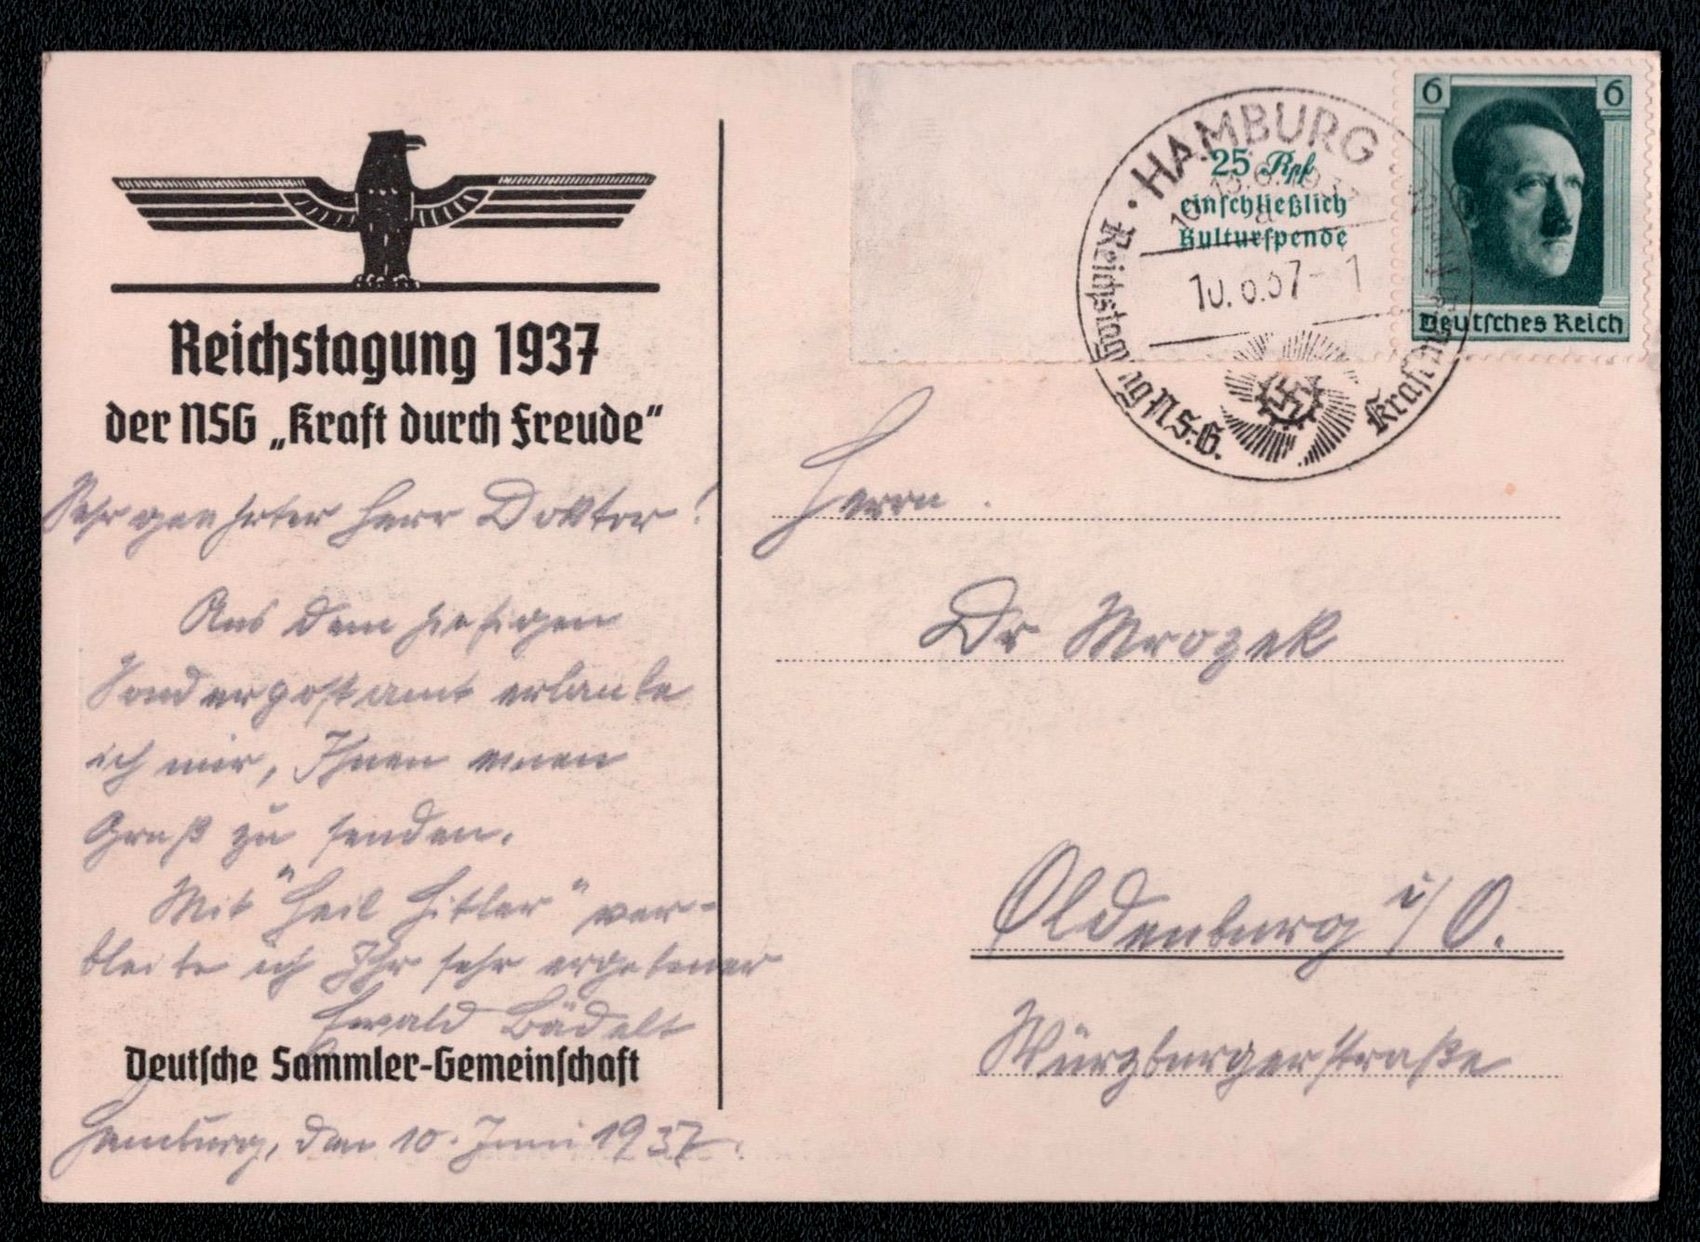 Reichstagung 1937
der NSG „Kraft durch Freude“
Sehr geehrter Herr Doktor!
Aus dem hiesigen
Sonderpostamt erlaube
ich mir, Ihnen einen
Gruß zu senden.
Mit "Heil Hitler" ver-
bleibe ich Ihr sehr ergebener
Ewald Bädelt
Deutsche Sammler-Gemeinschaft
Hamburg, den 10. Juni 1937.
25 Rpf
einschließlich
Kulturspende
6 6
Deutsches Reich
HAMBURG
Reichstagung N.S.G.
Kraft durch
Herrn
Dr Mrozek
Oldenburg i/O.
Würzburgerstraße